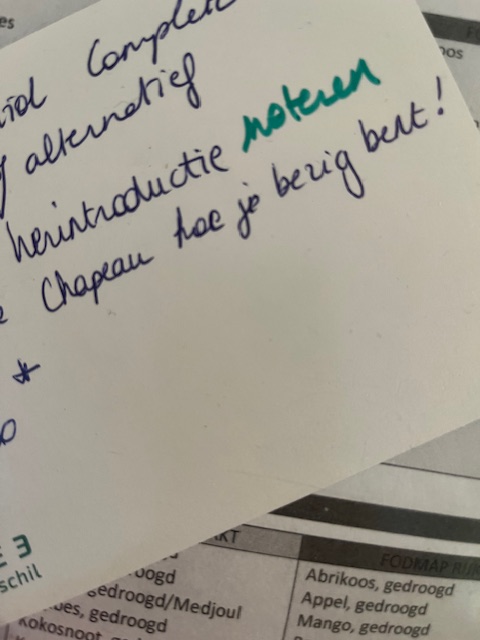 es
oos
Complet
alternatief
herintroductie noteren
Chapeau hoe je bezig bent!
*
3
schil
FODMAP RIJK
oogd
gedroogd/Medjoul
Abrikoos, gedroogd
es, gedroogd
Appel, gedroogd
Kokosnoot, ge
Mango, gedroogd